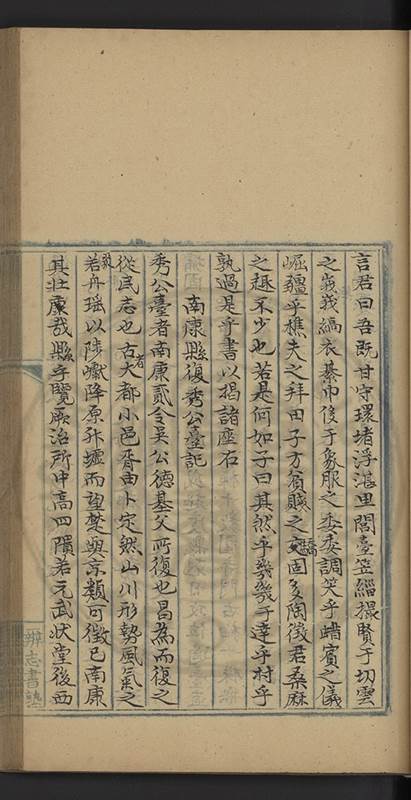 言君曰吾既甘守環堵浮湛里閭臺笠緇撮賢于切雲
之峩峩縞衣綦巾後于象服之委委調笑乎蜡賓之儀
崛彊乎樵夫之拜田子方貧賤之驕固多陶徵君桑麻
之趣不少也若是何如子曰其然乎幾幾于達乎村乎
孰過是乎書以揭諸座右
南康縣復秀公臺記
秀公臺者南康貳令吴公德基父所復也曷為而復之
從民志也古者大都小邑胥由卜定然山川形勢風氣之
若舟瑶以陟巘降原升墟而望楚與京類可徵已南康
其壯廉哉縣乎覽厥治所中高四隕若元武状堂後西
辨志書塾